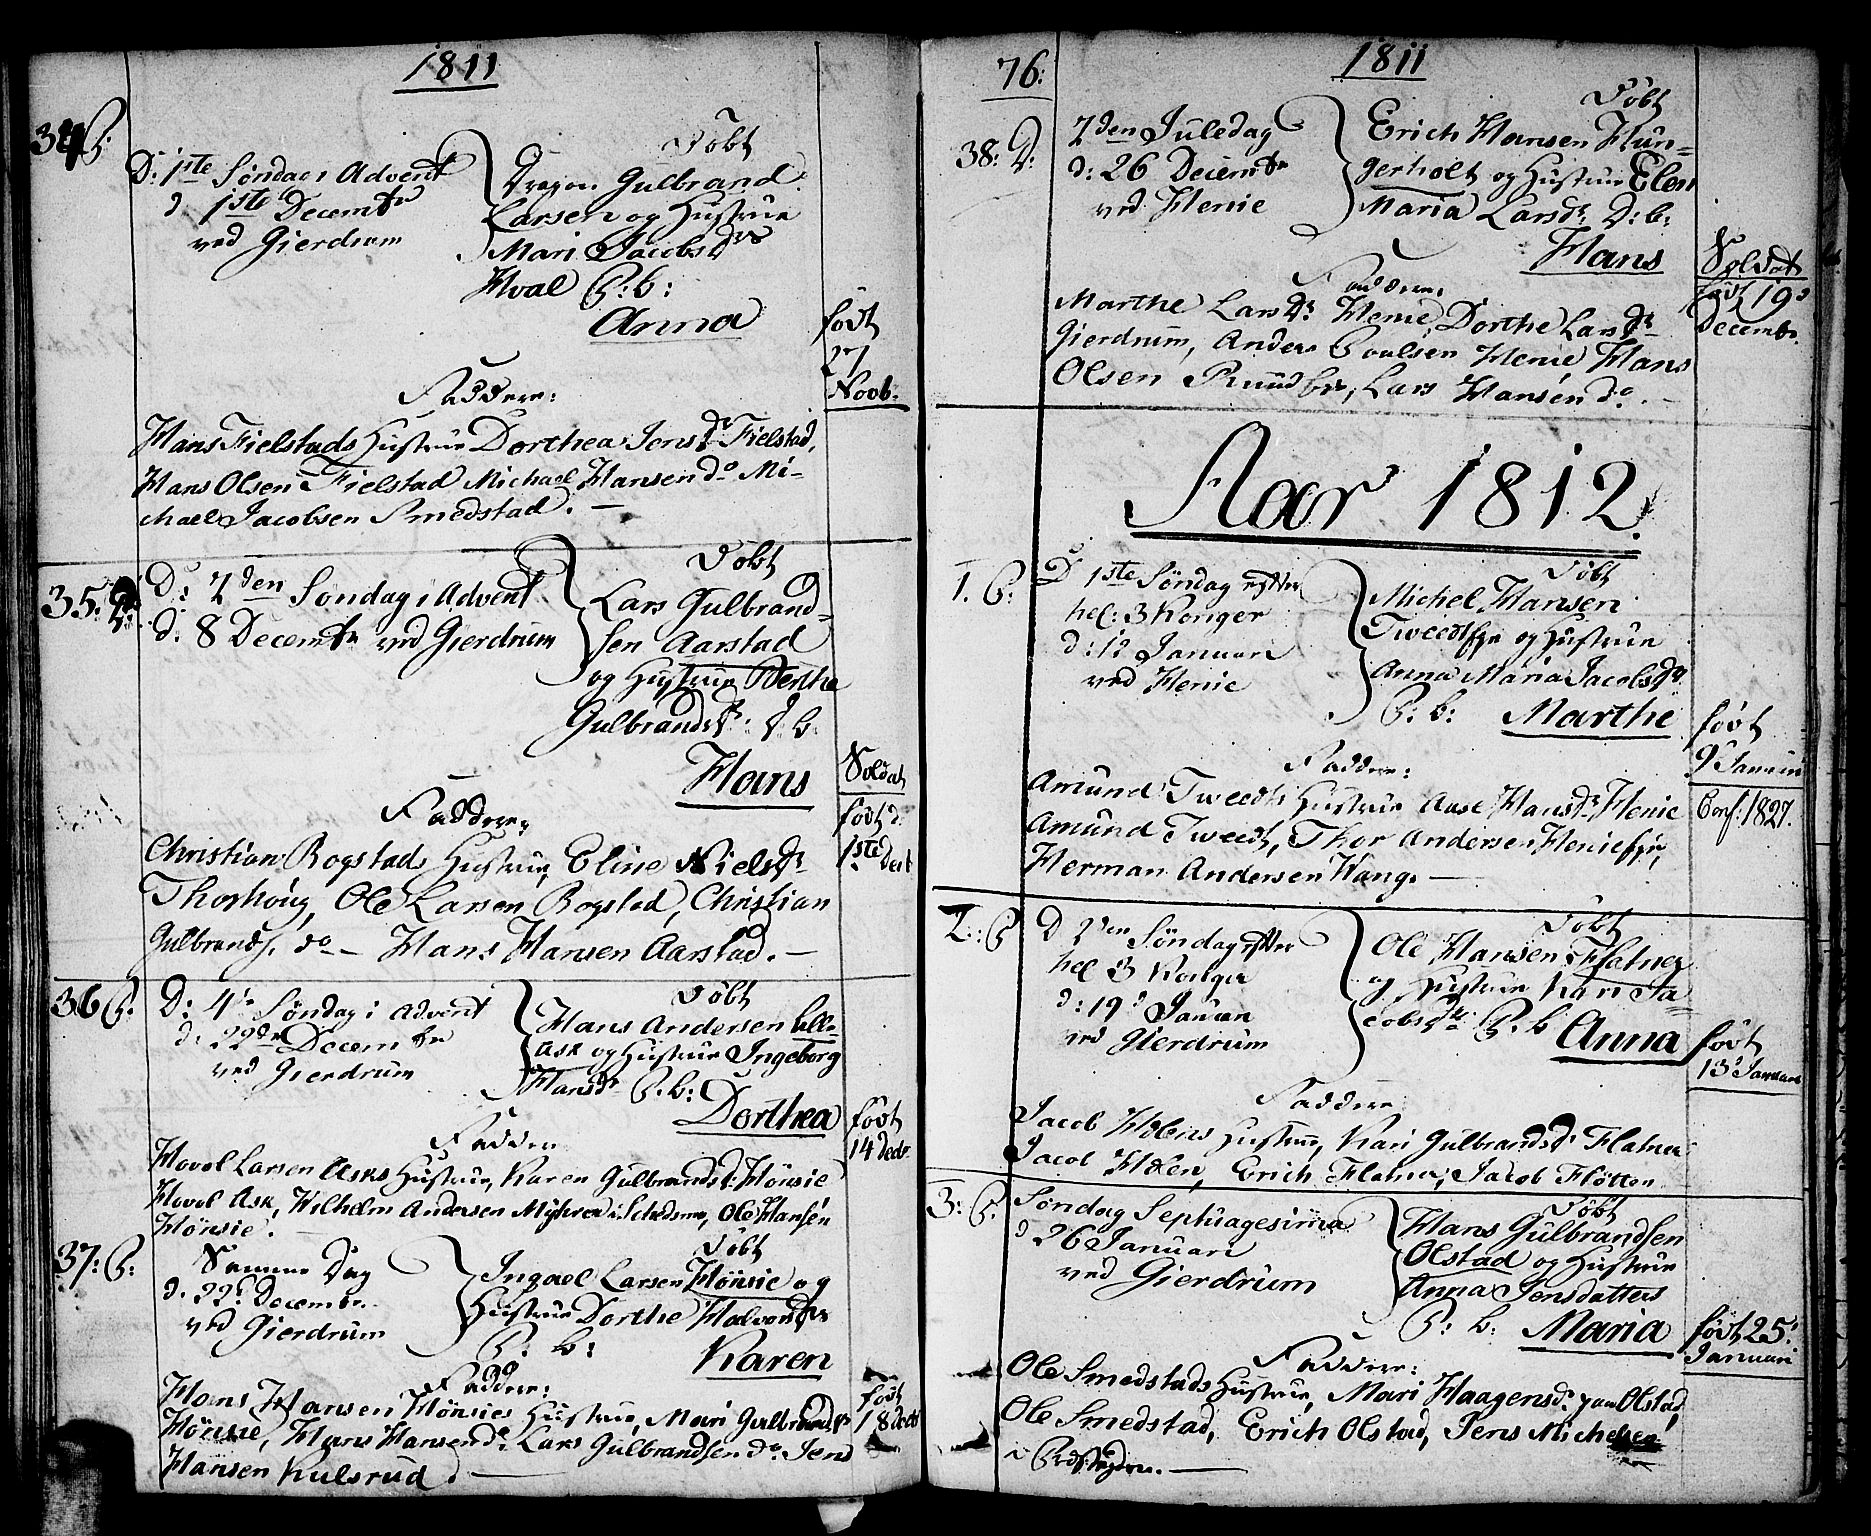 1811
34 P:
D: 1ste Søndag i Advent
d 1ste Decembr
ved Gierdrum
Døbt
Dragon Gulbrand
Larsen og Hustrue
Mari Jacobsdr
Hval P: b:
Anna
født
27
Novb:
Faddere:
Hans Fielstads Hustrue Dorthea Jensdr Fielstad,
Hans Olsen Fielstad Michael Hansen do Mi-
chael Jacobsen Smedstad. —
35. D:
D: 2den Søndag i Advent
d: 8 Decembr ved Gierdrum
Døbt
Lars Gulbrand-
sen Aarstad
og Hustrue Berthe
Gulbrandsdr: D b:
Hans
Soldat
født d.
1ste Decb
Faddere,
Christian Bogstads Hustrue, Eline Nielsdr
Thorshoug, Ole Larsen Bogstad, Christian
Gulbrands. do — Hans Hansen Aarstad. —
36 P.
D: 4de Søndag i Advent
d. 22de Decembr
ved Gierdrum
Døbt
Hans Andersen lille-
Ask og Hustrue Ingeborg
Hansdr P. b:
Dorthea
født
14 Decbr
Fadder
Hovel Larsen Asks Hustrue, Karen Gulbrandsd: Hønsie
Hovel Ask, Wilhelm Andersen Myhrer i Schedsmoe, Ole Hansen
Hønsie. —
37: P:
Samme Dag
d. 22d Decembr.
ved Gierdrum
Døbt
Ingael Larsen Hønsie og
Hustrue Dorthe Halvordsdr
P: b:
Karen
født
18 Decbr
Faddere:
Hans Hansen Hønsies Hustrue, Mari Gulbrandsdr
Hønsie, Hans Hansen do. Lars Gulbrandsen do. Jens
Hansen Kulsrud. —
76.
1811
38: D:
2den Juledag
d: 26 Decembr
ved Henie
Døbt
Erich Hansen Hun-
gerholt og Hustrue Elen
Maria Larsdr D: b:
Hans
Soldat
født 19d
Decembr.
Faddere,
Marthe Larsdr Henie, Dorthe Larsdr
Gierdrum, Anders Poulsen Henie Hans
Olsen Ruud, Lars Hansen do. —
Aar 1812.
1. P:
D 1ste Søndag efter
hel: 3 Konger
d: 12 Januari
ved Henie
Døbt
Michel Hansen
Tweedtejr og Hustrue
Anna Maria Jacobsdr
P: b: Marthe
født
9 Januari
Conf: 1827.
Faddere:
Amund Tweedts Hustrue Aase Hansdr Henie
Amund Tweedt, Thor Andersen Henieejr,
Herman Andersen Wang. —
2.: P
D 2den Søndag efter
hel 3 Konger
d: 19d Januari
ved Gierdrum
Døbt
Ole Hansen Flatner
og Hustrue Kari Ja-
cobsdr P. b Anna
født
13 Januari
Faddere
Jacob Holens Hustrue, Kari Gulbrandsdr Flatner
Jacob Holen, Erich Flatner, Jacob Fløtten
3: P.
Søndag Septuagesima
d 26 Januari
ved Gierdrum
Døbt
Hans Gulbrandsen
Olstad og Hustrue
Anna Jensdatters
P: b: Maria
født 25d
Januari
Faddere:
Ole Smedstads Hustrue, Mari Haagensdr paa Olstad,
Ole Smedstad, Erich Olstad, Jens Michelsen